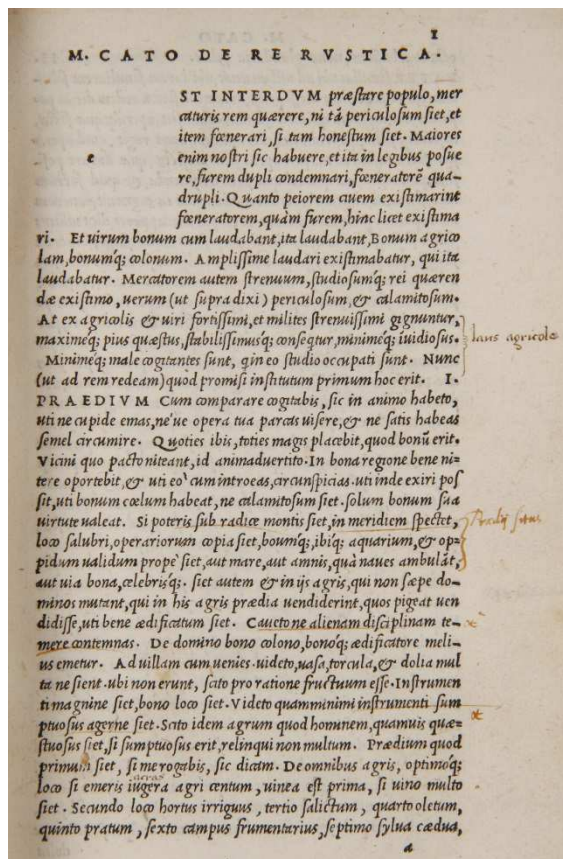 1
M. CATO DE RE RVSTICA.
ST INTERDVM præstare populo, mer
caturis rem quærere, ni tā periculosum siet, et
item fœnerari, si tam honestum siet. Maiores
e
enim nostri sic habuere, et ita in legibus posue
re, furem dupli condemnari, fœneratorē qua-
drupli. Quanto peiorem ciuem existimarint
fœneratorem, quàm furem, hinc licet existima
ri. Et uirum bonum cum laudabant, ita laudabant, Bonum agrico
lam, bonumq; colonum. Amplissime laudari existimabatur, qui ita
laudabatur. Mercatorem autem strenuum, studiosumq; rei quæren
dæ existimo, uerum (ut supra dixi) periculosum, & calamitosum.
At ex agricolis & uiri fortissimi, et milites strenuissimi gignuntur,
maximeq; pius quæstus, stabilissimusq; conseqtur, minimeq; iuidiosus.
laus agricolę
Minimeq; male cogitantes sunt, q in eo studio occupati sunt. Nunc
(ut ad rem redeam) quod promisi institutum primum hoc erit. I.
PRAEDIVM Cum comparare cogitabis, sic in animo habeto,
uti ne cupide emas, ne'ue opera tua parcas uisere, & ne satis habeas
semel circumire. Quoties ibis, toties magis placebit, quod bonū erit.
Vicini quo pacto niteant, id animaduertito. In bona regione bene ni-
tere oportebit, & uti eo' cum introeas, circunspicias. uti inde exiri pos
sit, uti bonum cœlum habeat, ne calamitosum siet. solum bonum sua
uirtute ualeat. Si poteris sub radice montis siet, in meridiem spectet,
Prædij situs
loco salubri, operariorum copia siet, boumq;, ibiq; aquarium, & op-
pidum ualidum propè siet, aut mare, aut amnis, quà naues ambulāt,
aut uia bona, celebrisq;. siet autem & in ijs agris, qui non sæpe do-
minos mutant, qui in his agris prædia uendiderint, quos pigeat uen
didisse, uti bene ædificatum siet. Caueto ne alienam disciplinam te-
mere contemnas. De domino bono colono, bonoq; ædificatore meli-
us emetur. Ad uillam cum uenies. uideto, uasa, torcula, & dolia mul
ta ne sient. ubi non erunt, scito pro ratione fructuum esse. Instrumen
ti magni ne siet, bono loco siet. Videto quam minimi instrumenti sum
ptuosus ager ne siet. Scito idem agrum quod hominem, quamuis quæ-
stuosus siet, si sumptuosus erit, relinqui non multum. Prædium quod
primum siet, si me rogabis, sic dicam. De omnibus agris, optimoq;
loco si emeris iugera agri centum, uinea est prima, si uino multo
siet. Secundo loco hortus irriguus, tertio salictum, quarto oletum,
quinto pratum, sexto campus frumentarius, septimo sylua cædua,
a